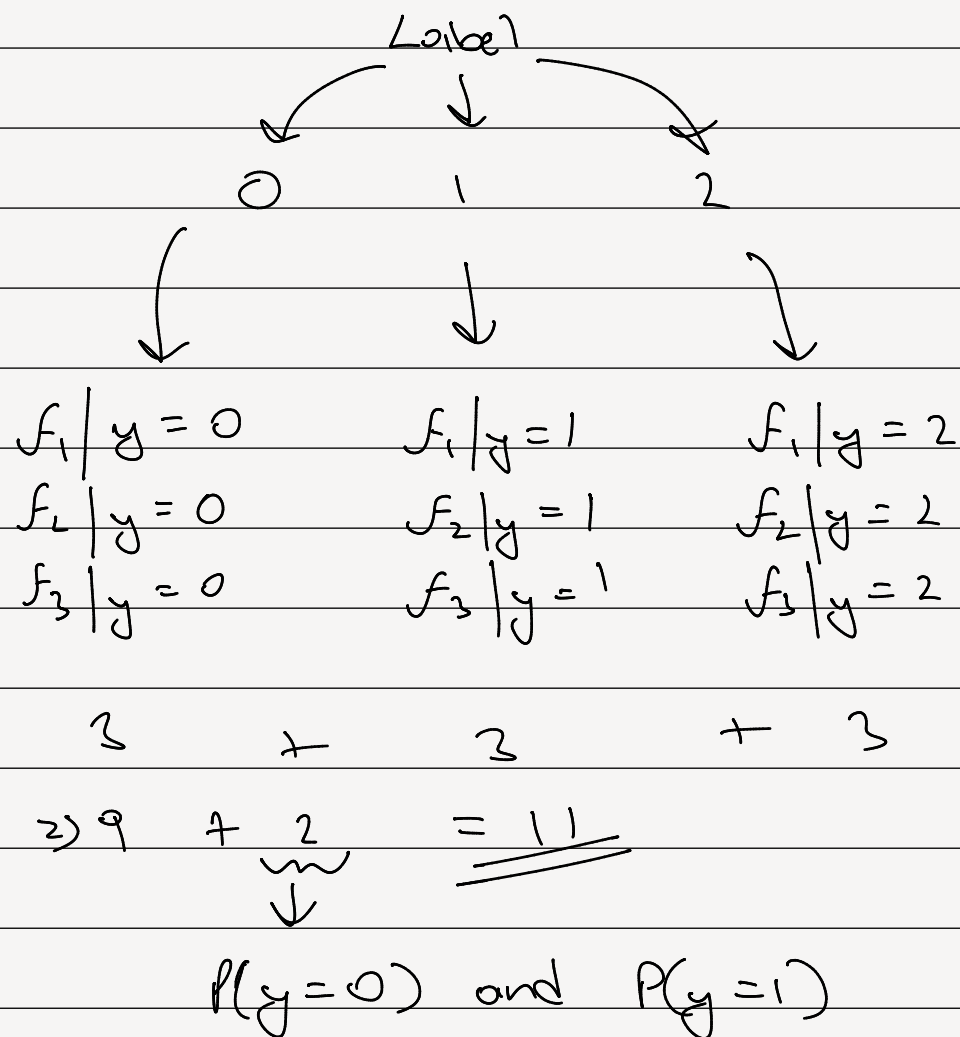 Label
0 1 2
f₁|y = 0 f₁|y = 1 f₁|y = 2
f₂|y = 0 f₂|y = 1 f₂|y = 2
f₃|y = 0 f₃|y = 1 f₃|y = 2
3 + 3 + 3
=> 9 + 2 = 11
P(y = 0) and P(y = 1)